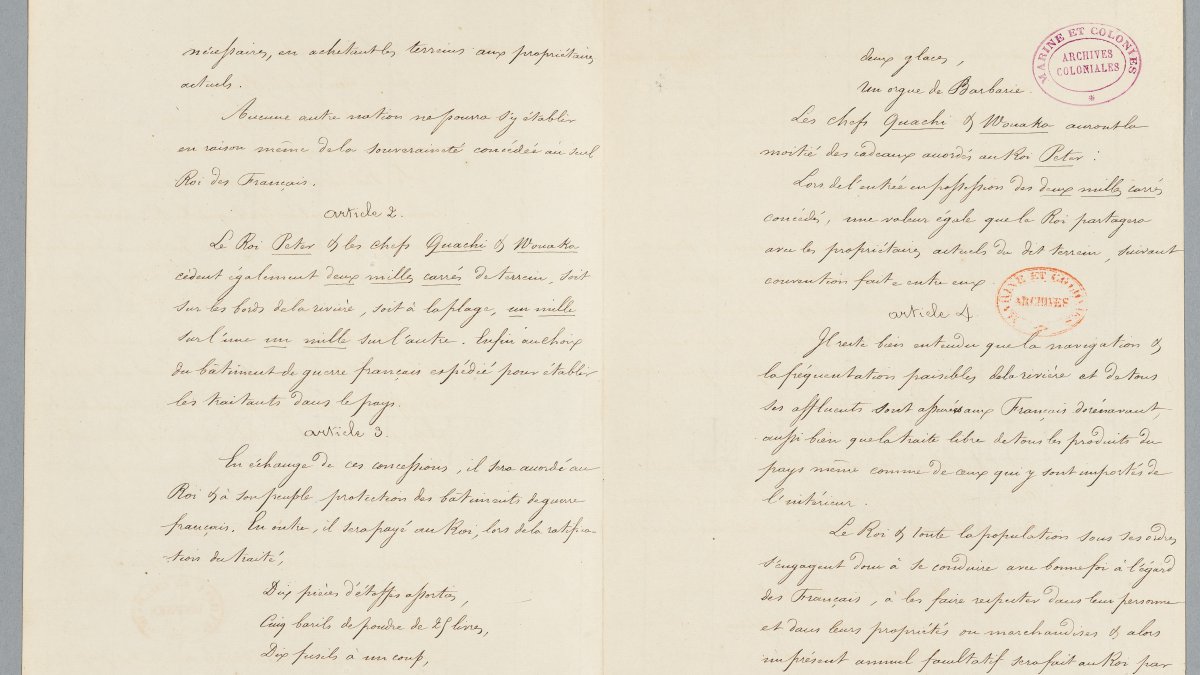 nécessaires, en achetant les terrains aux propriétaires
actuels.
Aucune autre nation ne pourra s'y établir
en raison même de la souveraineté concédée au seul
Roi des Français.
article 2.
Le Roi Peter & les chefs Quachi & Wouaka
cèdent également deux milles carrés de terrein, soit
sur les bords de la rivière, soit à la plage, un mille
sur l'une un mille sur l'autre. Enfin au choix
du bâtiment de guerre français expédié pour établir
les traitants dans le pays.
article 3.
En échange de ces concessions, il sera accordé au
Roi & à son peuple protection des bâtiments de guerre
français. En outre, il sera payé au Roi, lors de la ratifica-
tions du traité,
Dix pièces d'étoffes assorties,
Cinq barils de poudre de 25 livres,
Dix fusils à un coup,
deux glaces,
Un orgue de Barbarie.
Les chefs Quachi & Wouaka auront la
moitié des cadeaux accordés au Roi Peter :
Lors de l'entrée en possession des deux milles carrés
concédés, une valeur égale que le Roi partagera
avec les propriétaires actuels du dit terrein, suivant
convention faite entre eux.
article 4.
Il reste bien entendu que la navigation &
la fréquentation paisibles de la rivière et de tous
ses affluents sont assurés aux Français dorénavant,
aussi bien que la traite libre de tous les produits du
pays même comme de ceux qui y sont importés de
l'intérieur.
Le Roi & toute la population sous ses ordres
s'engagent donc à se conduire avec bonne foi à l'égard
des Français, à les faire respecter dans leur personne
et dans leurs propriétés ou marchandises & alors
un présent annuel facultatif sera fait au Roi par
MARINE ET COLONIES
ARCHIVES
COLONIALES
MARINE ET COLONIES
ARCHIVES